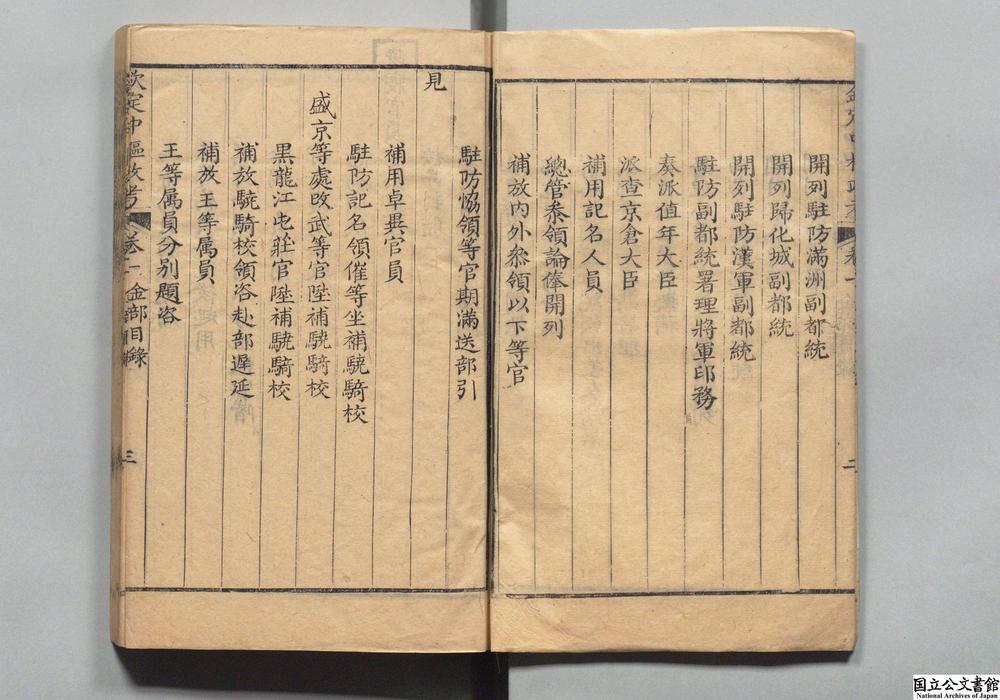 開列駐防滿洲副都統
開列歸化城副都統
開列駐防漢軍副都統
駐防副都統署理將軍印務
奏派值年大臣
派查京倉大臣
補用記名人員
總管叅領論俸開列
補放內外叅領以下等官
二
駐防恊領等官期滿送部引
見
補用卓異官員
駐防記名領催等坐補驍騎校
盛京等處改武等官陞補驍騎校
黑龍江屯莊官陞補驍騎校
補放驍騎校領咨赴部遲延
補放王等属員
王等属員分别題咨
欽定中樞政考 卷一 金部目錄
三
国立公文書館
National Archives of Japan